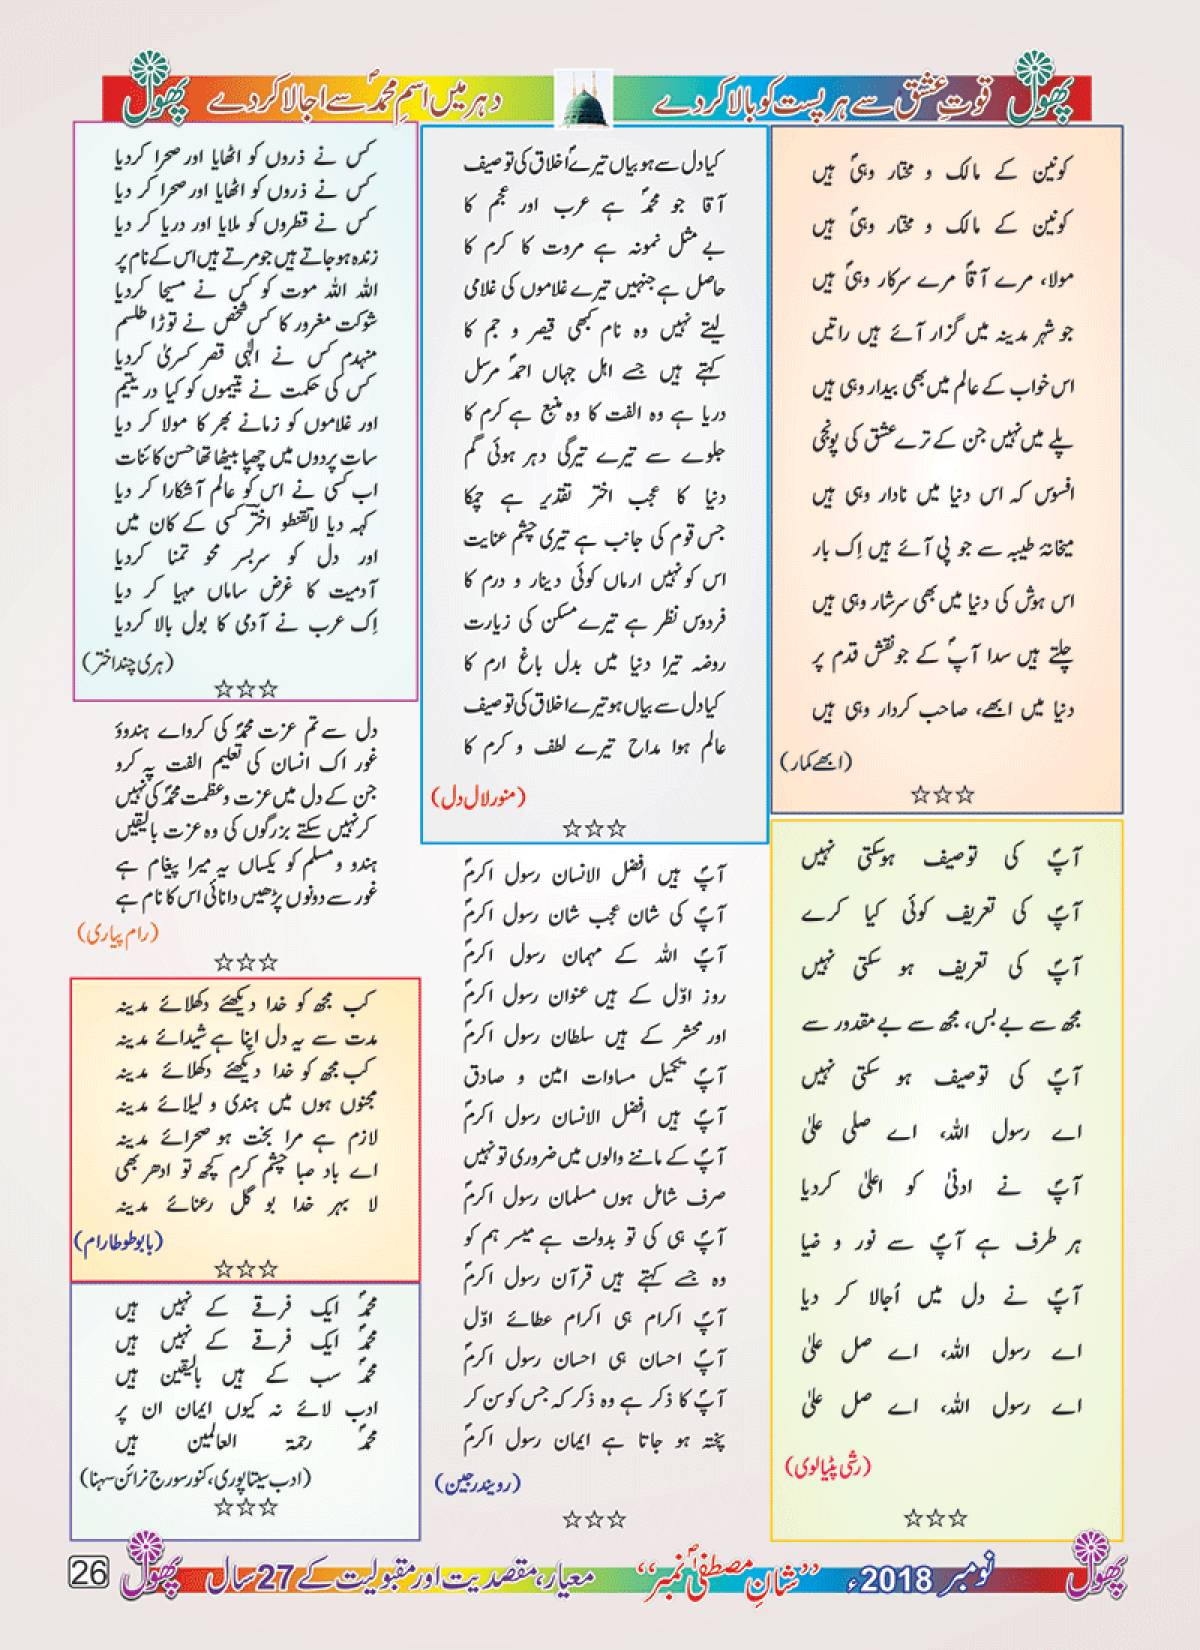 پھول
قوتِ عشق سے ہر پست کو بالا کر دے
دہر میں اسمِ محمدؐ سے اجالا کر دے
پھول
کونین کے مالک و مختار وہیؐ ہیں
کونین کے مالک و مختار وہیؐ ہیں
مولا، مرے آقاؐ مرے سرکار وہیؐ ہیں
جو شہر مدینہ میں گزار آئے ہیں راتیں
اس خواب کے عالم میں بھی بیدار وہی ہیں
پلے میں نہیں جن کے ترے عشق کی پونجی
افسوس کہ اس دنیا میں نادار وہی ہیں
میخانۂ طیبہ سے جو پی آئے ہیں اِک بار
اس ہوش کی دنیا میں بھی سرشار وہی ہیں
چلتے ہیں سدا آپؐ کے جو نقش قدم پر
دنیا میں ابھے، صاحب کردار وہی ہیں
(ابھے کمار)
☆☆☆
آپؐ کی توصیف ہوسکتی نہیں
آپؐ کی تعریف کوئی کیا کرے
آپؐ کی تعریف ہو سکتی نہیں
مجھ سے بے بس، مجھ سے بے مقدور سے
آپؐ کی توصیف ہو سکتی نہیں
اے رسول اللہ، اے صلی علیٰ
آپؐ نے ادنیٰ کو اعلیٰ کردیا
ہر طرف ہے آپؐ سے نور و ضیا
آپؐ نے دل میں اُجالا کر دیا
اے رسول اللہ، اے صل علیٰ
اے رسول اللہ، اے صل علیٰ
(رشی پٹیالوی)
☆☆☆
کیا دل سے ہو بیاں تیرے اخلاق کی توصیف
آقا جو محمدؐ ہے عرب اور عجم کا
بے مثل نمونہ ہے مروت کا کرم کا
حاصل ہے جنہیں تیرے غلاموں کی غلامی
لیتے نہیں وہ نام کبھی قیصر و جم کا
کہتے ہیں جسے اہل جہاں احمدؐ مرسل
دریا ہے وہ الفت کا وہ منبع ہے کرم کا
جلوے سے تیرے تیرگی دہر ہوئی گم
دنیا کا عجب اختر تقدیر ہے چمکا
جس قوم کی جانب ہے تیری چشم عنایت
اس کو نہیں ارماں کوئی دینار و درم کا
فردوس نظر ہے تیرے مسکن کی زیارت
روضہ تیرا دنیا میں بدل باغ ارم کا
کیا دل سے بیاں ہو تیرے اخلاق کی توصیف
عالم ہوا مداح تیرے لطف و کرم کا
(منور لال دل)
☆☆☆
آپؐ ہیں افضل الانسان رسول اکرمؐ
آپؐ کی شان عجب شان رسول اکرمؐ
آپؐ اللہ کے مہمان رسول اکرمؐ
روز اوّل کے ہیں عنوان رسول اکرمؐ
اور محشر کے ہیں سلطان رسول اکرمؐ
آپؐ تکمیل مساوات امین و صادق
آپؐ ہیں افضل الانسان رسول اکرمؐ
آپؐ کے ماننے والوں میں ضروری تو نہیں
صرف شامل ہوں مسلمان رسول اکرمؐ
آپؐ ہی کی تو بدولت ہے میسر ہم کو
وہ جسے کہتے ہیں قرآن رسول اکرمؐ
آپؐ اکرام ہی اکرام عطائے اوّل
آپؐ احسان ہی احسان رسول اکرمؐ
آپؐ کا ذکر ہے وہ ذکر کہ جس کو سن کر
پختہ ہو جاتا ہے ایمان رسول اکرمؐ
(رویندر جین)
☆☆☆
کس نے ذروں کو اٹھایا اور صحرا کردیا
کس نے ذروں کو اٹھایا اور صحرا کر دیا
کس نے قطروں کو ملایا اور دریا کر دیا
زندہ ہو جاتے ہیں جو مرتے ہیں اس کے نام پر
اللہ اللہ موت کو کس نے مسیحا کردیا
شوکت مغرور کا کس شخص نے توڑا طلسم
منہدم کس نے الٰہی قصر کسریٰ کردیا
کس کی حکمت نے یتیموں کو کیا در یتیم
اور غلاموں کو زمانے بھر کا مولا کر دیا
سات پردوں میں چھپا بیٹھا تھا حسن کائنات
اب کسی نے اس کو عالم آشکارا کر دیا
کہہ دیا لاتقنطو اختر کسی کے کان میں
اور دل کو سربسر محو تمنا کردیا
آدمیت کا غرض ساماں مہیا کر دیا
اِک عرب نے آدمی کا بول بالا کردیا
(ہری چند اختر)
☆☆☆
دل سے تم عزت محمدؐ کی کرو اے ہندوؤ
غور اک انسان کی تعلیم الفت پہ کرو
جن کے دل میں عزت و عظمت محمدؐ کی نہیں
کر نہیں سکتے بزرگوں کی وہ عزت بالیقیں
ہندو و مسلم کو یکساں یہ میرا پیغام ہے
غور سے دونوں پڑھیں دانائی اس کا نام ہے
(رام پیاری)
☆☆☆
کب مجھ کو خدا دیکھئے دکھلائے مدینہ
مدت سے یہ دل اپنا ہے شیدائے مدینہ
کب مجھ کو خدا دیکھئے دکھلائے مدینہ
مجنوں ہوں میں ہندی و لیلائے مدینہ
لازم ہے مرا بخت ہو صحرائے مدینہ
اے باد صبا چشم کرم کچھ تو ادھر بھی
لا بہر خدا بو گل رعنائے مدینہ
(بابو طوطا رام)
☆☆☆
محمدؐ ایک فرقے کے نہیں ہیں
محمدؐ ایک فرقے کے نہیں ہیں
محمدؐ سب کے ہیں بالیقین ہیں
ادب لائے نہ کیوں ایمان ان پر
محمدؐ رحمۃ العالمین ہیں
(ادب سیتا پوری، کنور سورج نرائن سہنا)
☆☆☆
پھول
نومبر 2018ء
”شانِ مصطفیٰؐ نمبر“
معیار، مقصدیت اور مقبولیت کے 27 سال
پھول
26